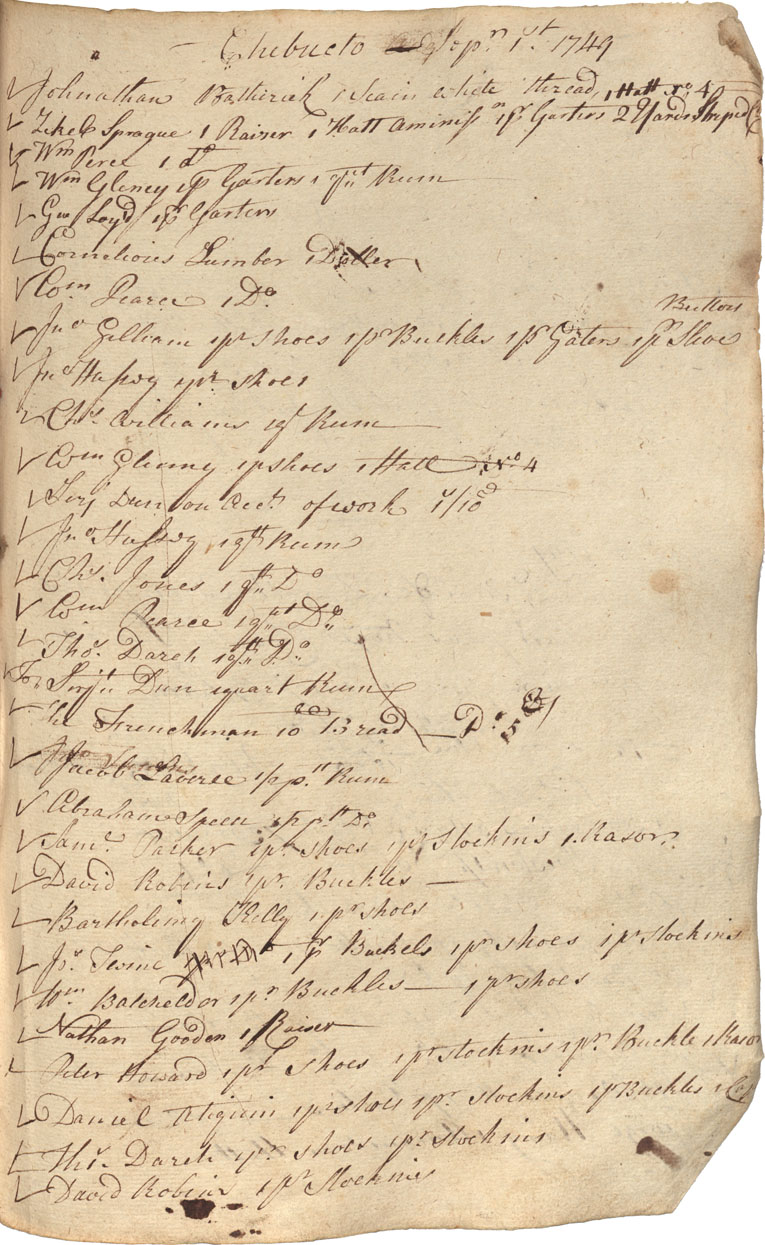 Chebucto Sepn 1st 1749
Johnathan 1 Scain white thread, 1 Hatt No 4
Zekel Sprague 1 Raiser 1 Hatt 1 pr Garters 2 Yards Striped
Wm Perce 1 do
Wm Gleney 1 pr Garters 1 Rum
Geo Loyd 1 pr Garters
Cornelious Lumber 1 Doller
Wm Pearce 1 Do
Buttons
Jno Gilliam 1 pr Shoes 1 pr Buckles 1 pr Gaters 1 pr Sleve
Jno Hassey 1 pr Shoes
Chs Williams 1 qt Rum
Wm Glenny 1 p shoes 1 Hatt No 4
Dun on Acct of work 1/10d
Jno Hassey 1 qt Rum
Chs. Jones 1 qt Do
Wm Pearce 1 Do
Thos Darch 1 qt Do
Dun 1 quart Rum
The Frenchman 10 Bread Do
Jacob 1/2 pt Rum
Abraham Speen 1/2 pt Do
Saml Parker 1 pr Shoes 1 pr Stockins 1 Rasor
David Robins 1 pr Buckles
Bartholimy Kelly 1 pr shoes
Twine 1 pr Buckels 1 pr shoes 1 pr Stockins
Wm Batcheldor 1 pr Buckles 1 pr shoes
Nathan Gooden 1 Raiser
Peter Howard 1 pr Shoes 1 pr stockins 1 pr Buckle 1 Rasor
Daniel 1 pr shoes 1 pr Stockins 1 pr Buckles 1
Ths. Darch 1 pr shoes 1 pr Stockins
David Robins 1 pr Stockins